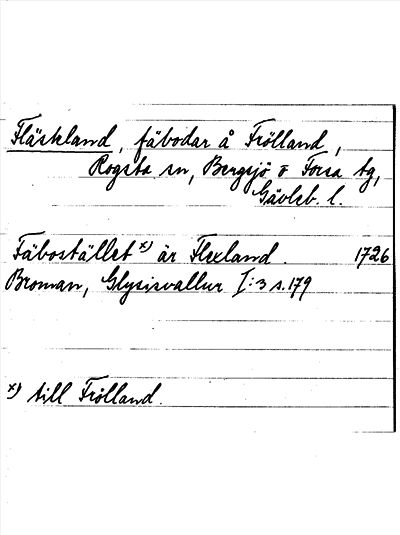 Fläskland, fäbodar å Frölland,
Rogsta sn, Bergsjö o Forsa tg,
Gävleb. l.
Fäbostället x) är Flexland. 1726
Broman, Glysisvallur I:3 s. 179
x) till Frölland.